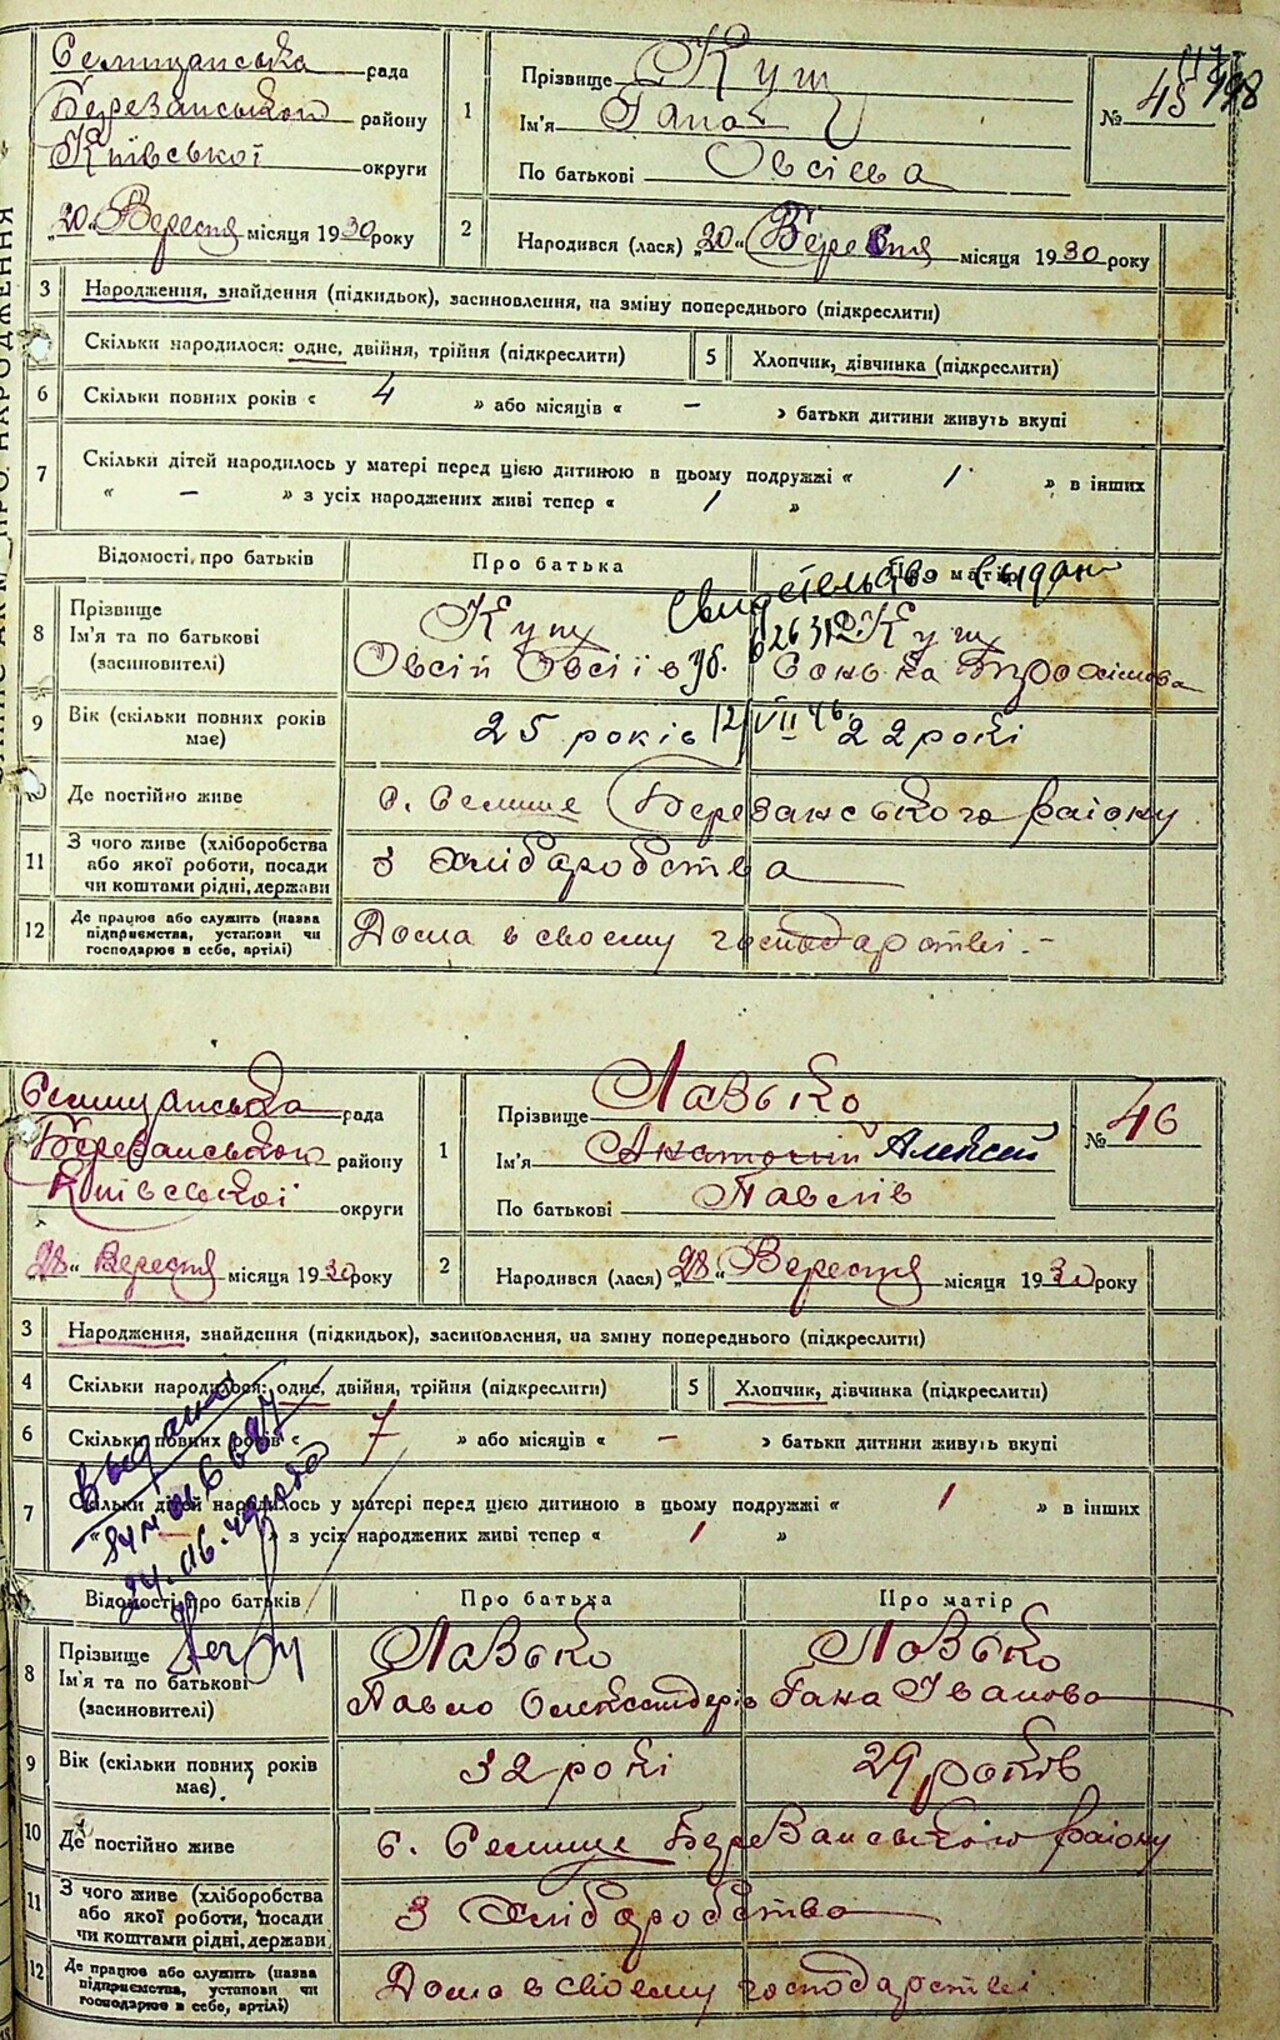 Селищанська рада
Березанського району
Київської округи
„20“ Вересня місяця 1930 року
1
Прізвище Кущ
Ім'я Гана
По батькові Овсієва
№ 45
198
2
Народився (лася) „20“ Вересня місяця 1930 року
3 Народження, знайдення (підкидьок), засиновлення, на зміну попереднього (підкреслити)
Скільки народилося: одне, двійня, трійня (підкреслити)
5 Хлопчик, дівчинка (підкреслити)
6 Скільки повних років « 4 » або місяців « – » батьки дитини живуть вкупі
7 Скільки дітей народилось у матері перед цією дитиною в цьому подружжі « 1 » в інших
« – » з усіх народжених живі тепер « 1 »
Відомості про батьків Про батька Про матір
Свидетельство выдано
8 Прізвище
Ім'я та по батькові
(засиновителі)
Кущ
Овсій Овсіїв
уб. 626312
Кущ
Сонька Трохимова
9 Вік (скільки повних років має)
25 років
12/VII 46.
22 рокі
10 Де постійно живе
с. Селище Березанського району
11 З чого живе (хліборобства
або якої роботи, посади
чи коштами рідні, держави
З Хліборобства
12 Де працює або служить (назва
підприємства, установи чи
господарює в себе, артілі)
Дома в своему господарстві. –
Селищанська рада
Березанського району
Київської округи
„28“ Вересня місяця 1930 року
1
Прізвище Лазько
Ім'я Анатолій Алексей
По батькові Павлів
№ 46
2
Народився (лася) „28“ Вересня місяця 1930 року
3 Народження, знайдення (підкидьок), засиновлення, на зміну попереднього (підкреслити)
4 Скільки народилося: одне, двійня, трійня (підкреслити)
5 Хлопчик, дівчинка (підкреслити)
6 Скільки повних років « 7 » або місяців « – » батьки дитини живуть вкупі
7 Скільки дітей народилось у матері перед цією дитиною в цьому подружжі « 1 » в інших
« – » з усіх народжених живі тепер « 1 »
Выдано
Відомості про батьків Про батька Про матір
8 Прізвище
Ім'я та по батькові
(засиновителі)
Лазько
Павло Олександерів
Лазько
Гана Іванова
9 Вік (скільки повних років має)
32 рокі
29 років
10 Де постійно живе
с. Селище Березанського району
11 З чого живе (хліборобства
або якої роботи, посади
чи коштами рідні, держави
З Хліборобства
12 Де працює або служить (назва
підприємства, установи чи
господарює в себе, артілі)
Дома в своему господарстві